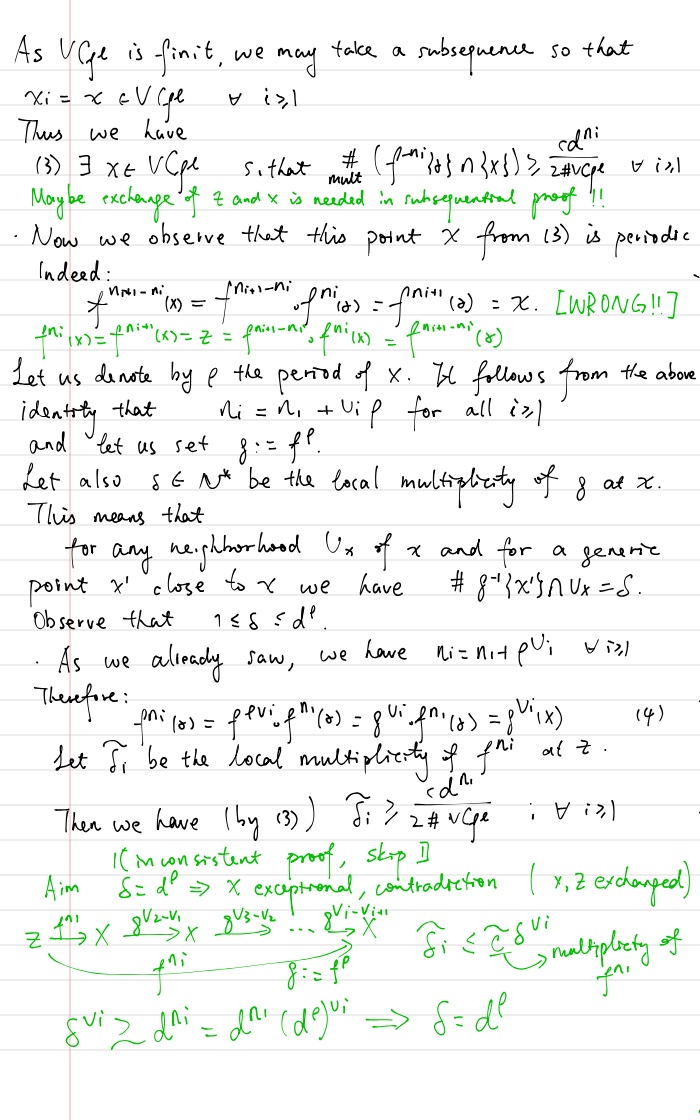 As VCgl is finit, we may take a subsequence so that
xi = x ∈ VCgl ∀ i≥1
Thus we have
(3) ∃ x ∈ VCgl s.that #mult (f^{-ni}{z} ∩ {x}) ≥ cd^{ni} / 2#VCgl ∀ i≥1
Maybe exchange of z and x is needed in subsequential proof !!
· Now we observe that this point x from (3) is periodic
Indeed:
f^{ni+1-ni}(x) = f^{ni+1-ni} ∘ f^{ni}(z) = f^{ni+1}(z) = x. [WRONG!!]
f^{ni}(x) = f^{ni+1}(x) = z = f^{ni+1-ni} ∘ f^{ni}(x) = f^{ni+1-ni}(z)
Let us denote by ρ the period of x. It follows from the above
identity that ni = n1 + νi ρ for all i≥1
and let us set g := f^ρ.
Let also δ ∈ N* be the local multiplicity of g at x.
This means that
for any neighborhood Ux of x and for a generic
point x' close to x we have # g^{-1}{x'} ∩ Ux = δ.
Observe that 1 ≤ δ ≤ d^ρ.
· As we already saw, we have ni = n1 + ρνi ∀ i≥1
Therefore:
f^{ni}(z) = f^{ρνi} ∘ f^{n1}(z) = g^{νi} ∘ f^{n1}(z) = g^{νi}(x) (4)
Let δ̃i be the local multiplicity of f^{ni} at z.
Then we have (by (3)) δ̃i ≥ cd^{ni} / 2#VCgl ; ∀ i≥1
[(inconsistent proof, skip)]
Aim δ = d^ρ ⇒ x exceptional, contradiction (x, z exchanged)
z —f^{n1}→ x —g^{ν2-ν1}→ x —g^{ν3-ν2}→ ... —g^{νi-νi+1}→ x δ̃i ≤ c̃ δ^{νi} → multiplicity of f^{n1}
f^{ni} g := f^ρ
δ^{νi} ≳ d^{ni} = d^{n1} (d^ρ)^{νi} ⟹ δ = d^ρ